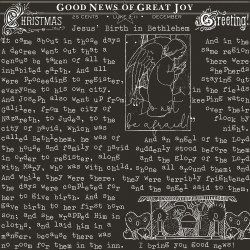 GOOD NEWS OF GREAT JOY
CHRISTMAS
25 CENTS • LUKE 2:11 • DECEMBER
Greeting!
Jesus' Birth in Bethlehem
It came about in those days
A decree went out that a
census be taken of all the
inhabited earth. And all
were proceeding to register,
everyone to his own city.
And Joseph went up from
Galilee, from the city of
Nazareth, to Judea, to the
city of David, which was
called Bethlehem; he was of
the house and family of David
in order to register, along
with Mary, who was with child.
And while they were there,
the days were completed for
her to give birth. And she
gave birth to her first born
son; and she wrapped Him in
cloths, and laid him in a
manger, because there was
no room for them in the inn.
do not
be afraid
And in the
same region
there were
shepherds
staying out
in the
fields
over their
flock by
night.
And an angel of the Lord
suddenly stood before them
and the glory of the Lord
shone all around them; and
they were terribly frightened
and the angel said to them
I bring you good news